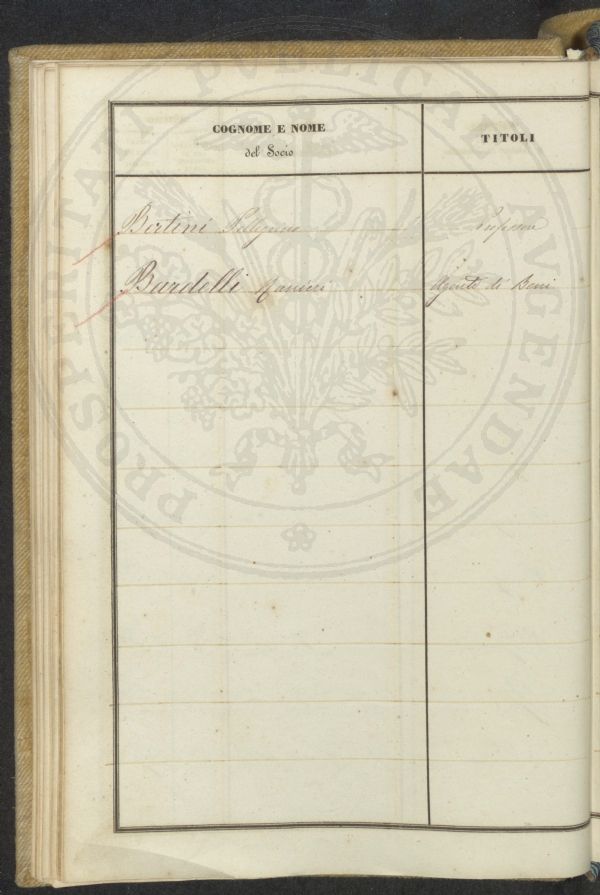 PROSPERITATI PVBLICAE AVGENDAE
COGNOME E NOME
del Socio
TITOLI
Bertini Pellegrino Professore
Burdelli Ranieri Agente di Beni